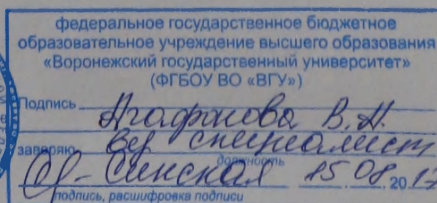 федеральное государственное бюджетное
образовательное учреждение высшего образования
«Воронежский государственный университет»
(ФГБОУ ВО «ВГУ»)
Подпись Агафонова В.Н.
заверяю вед специалист
должность
Синская 15 08 2017
подпись, расшифровка подписи